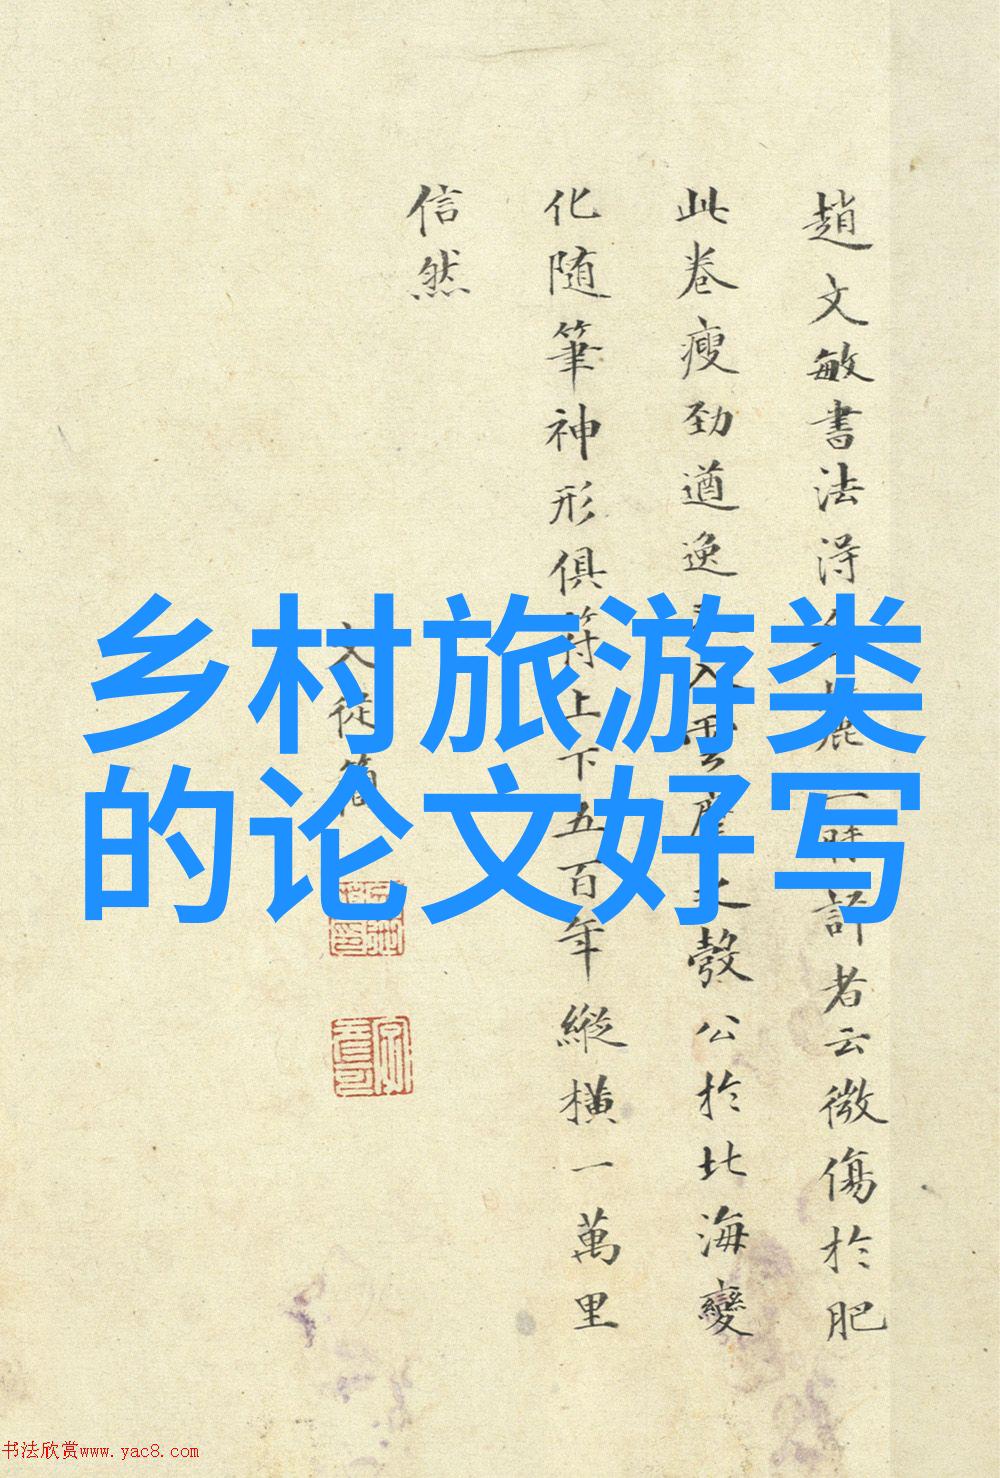 趙文敏書法淂
評者云微傷於肥
此卷瘦劲遒逸
入雲麾之
公於北海變
化随筆神形俱符上下五百年縱橫一萬里
信然
文從簡
乡村旅游类
的论文好写
书法欣赏www.yac8.com